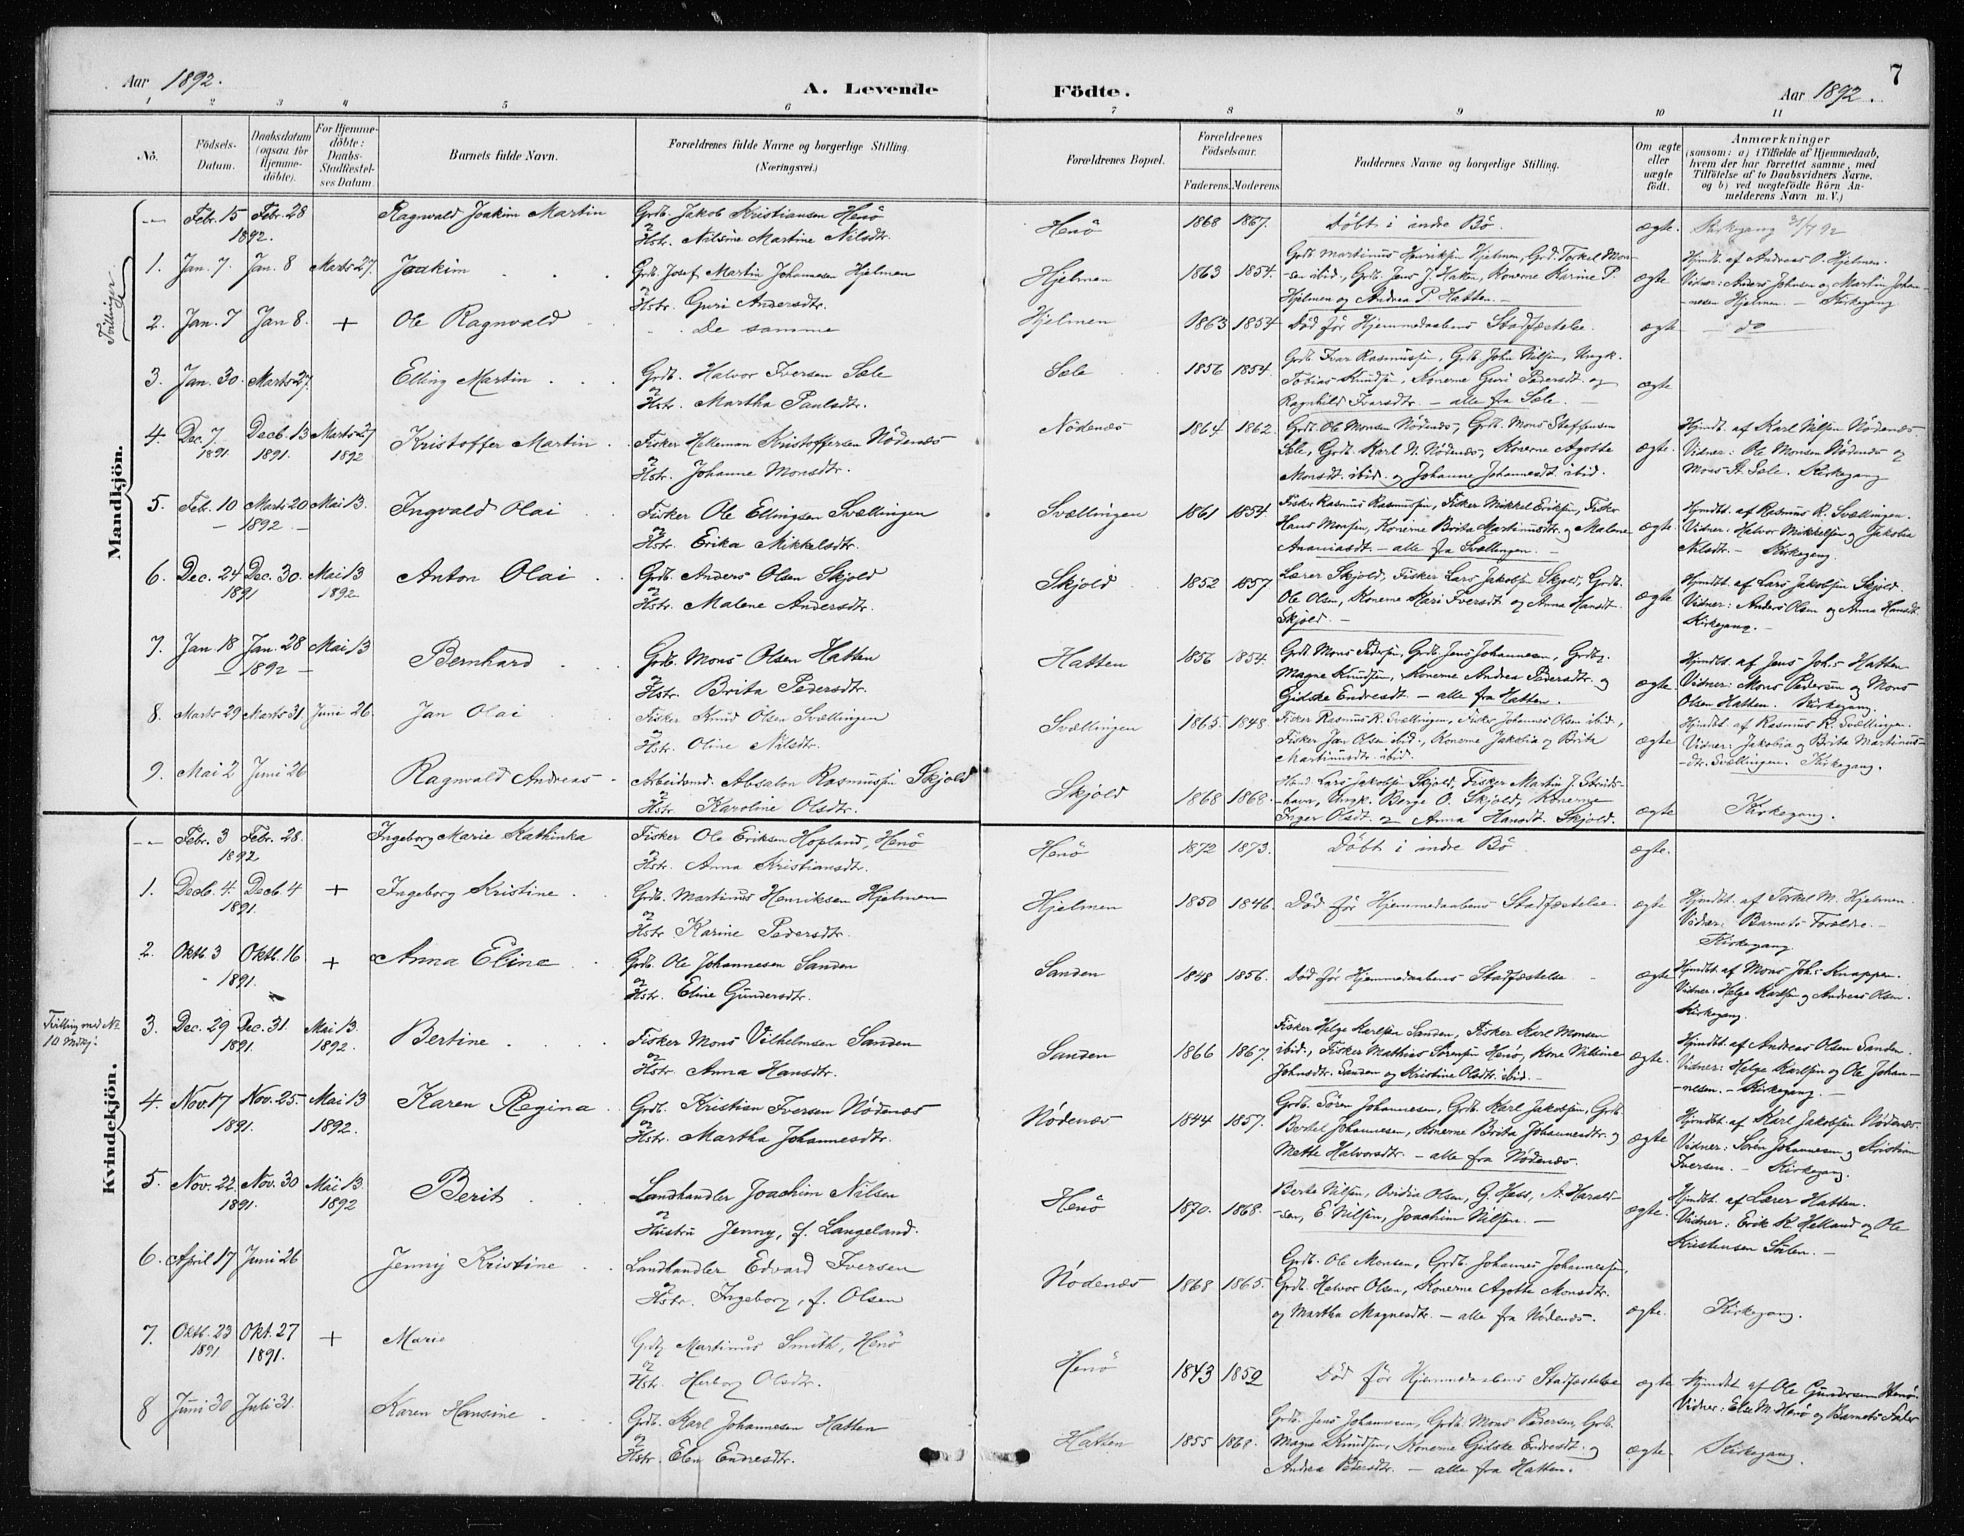 Aar 1892.
A. Levende Födte.
Aar 1892.
7
1 2 3 4 5 6 7 8 9 10 11
No.
Födsels-Datum.
Daabsdatum (ogsaa for Hjemme-döbte).
For Hjemme-döbte: Daabs-Stadfæstel-ses Datum.
Barnets fulde Navn.
Forældrenes fulde Navne og borgerlige Stilling. (Næringsvei.)
Forældrenes Bopæl.
Forældrenes Födselsaar.
Faderens. Moderens.
Faddernes Navne og borgerlige Stilling.
Om ægte eller uægte födt.
Anmærkninger
(saasom: a) i Tilfælde af Hjemmedaab, hvem der har forrettet samme, med Tilföielse af to Daabsvidners Navne. og b) ved uægtefödte Börn An-melderens Navn m. V.)
Mandkjön.
— Febr. 15 Febr. 28 Ragnvald Joakim Martin Grdb. Jakob Kristiansen Henö Henö 1868 1867. Döbt i indre Bö. ægte. Kirkegang
1892. Hstr. Nilsine Martine Nilsdtr.
Trillinger
1. Jan. 7. Jan. 8 Marts 27. Joakim Grdb. Josef Martin Johannesen Hjelmen Hjelmen 1863 1854. Grdb. Martinus Henriksen Hjelmen, Grdb. Torkel Mon-
-sen ibid., Grdb. Jens J. Hatten, Konerne Karine P.
Hjelmen og Andrea P. Hatten. — ægte
og Hstr. Guri Andersdtr.
Hjmdt. af Andreas O. Hjelmen.
Vidner: Anders Johnsen og Martin Johan-
-nesen Hjelmen. — Kirkegang
2. Jan. 7 Jan 8. + Ole Ragnvald De samme Hjelmen 1863 1854 Död för Hjemmedaabens Stadfæstelse. ægte do
3. Jan. 30. Marts 27. Elling Martin Grdb. Halvor Iversen Sæle Sæle 1856 1854. Grdb. Ivar Rasmussen, Grdb. John Nilsen, Ungk.
Tobias Knudsen, Konerne Guri Pedersdt. og
Ragnhild Ivarsdtr. — alle fra Sæle. — ægte
og Hstr. Martha Paulsdtr.
4. Dec. 7 1891 Decb. 13 1891. Marts 27 1892 Kristoffer Martin Fisker Helleman Kristoffersen Nödenæs Nödenæs 1864 1862. Grdb. Ole Monsen Nödenæs, Grdb. Mons Steffensen
Sæle, Grdb. Karl N. Nödenæs, Konerne Agothe
Monsdt. ibid. og Johanne Johannesdt. ibid. ægte.
og Hstr. Johanne Monsdtr.
Hjmdt. af Karl Nilsen Nödenæs.
Vidner: Ole Monsen Nödenæs og
Mons St. Sæle. Kirkegang
5. Feb. 10 Marts 20 Mai 13. Ingvald Olai Fisker Ole Ellingsen Svællingen Svællingen 1861 1854 Fisker Rasmus Rasmussen, Fisker Mikkel Eriksen, Fisker
— 1892 — og Hstr. Erika Mikkelsdtr.
Hans Monsen, Konerne Brita Martinusdtr. og Malene
Ananiasdt. — alle fra Svællingen. — ægte
Hjmdbt. af Rasmus R. Svællingen.
Vidner: Halvor Mikkelsen og Jakobia
Nilsdt. — Kirkegang.
6. Dec. 24 Dec. 30. 1891 Mai 13 1892. Anton Olai Grdb. Anders Olsen Skjold Skjold 1852 1857 Lærer Skjold, Fisker Lars Jakobsen Skjold, Grdb.
Ole Olsen, Konerne Kari Iversdt og Anna Hansdt.
Skjold. — ægte
og Hstr. Malene Andersdtr.
Hjmdbt. af Lars Jakobsen Skjold.
Vidner: Anders Olsen og Anna Hansdt.
Kirkegang. —
7. Jan 18 Jan. 28 Mai 13 — 1892 — Bernhard Grdb. Mons Olsen Hatten Hatten 1856 1854. Grdb Mons Pedersen, Grdb. Jens Johannesen, Grdbg.
Magne Knudsen, Konerne Andrea Pedersdtr. og
Gidske Endresdt. — alle fra Hatten. ægte.
og Hstr. Brita Pedersdtr.
Hjmdbt. af Jens Joh.s Hatten
Vidner: Mons Pedersen og Mons
Olsen Hatten. Kirkegang.
8. Marts 29 Marts 31 Juni 26. Jan Olai Fisker Knud Olsen Svællingen Svællingen 1865 1848 Fisker Rasmus R. Svællingen, Fisker Johannes Olsen ibid.,
Fisker Jan Olsen ibid., Konerne Jakobia og Brita
Martinusdtr. ibid. ægte
og Hstr. Oline Nilsdtr.
Hjmdbt. af Rasmus R. Svællingen.
Vidner: Jakobia og Brita Martinus-
-dtr. Svællingen. Kirkegang.
9. Mai 2 Juni 26 Ragnvald Andreas Arbeidsmd. Absalon Rasmussen Skjold Skjold 1868 1868. Lars Jakobsen Skjold, Fisker Martin J.
havn, Ungk. Berge O. Skjold, Konerne
Inger Olsdt. og Anna Hansdt. Skjold. ægte Kirkegang.
og Hstr. Karoline Olsdtr.
Kvindekjön.
— Febr. 3 Febr. 28. 1892 Ingeborg Marie Kathinka Fisker Ole Eriksen Hopland, Henö Henö 1872 1873. Döbt i indre Bö ægte.
og Hstr. Anna Kristiansdtr.
1. Decb. 4. Decb. 4 1891. + Ingeborg Kristine Grdb. Martinus Henriksen Hjelmen Hjelmen 1850 1846. Död för Hjemmedaabens Stadfæstelse. ægte
og Hstr. Karine Pedersdtr.
Hjmdbt. af Torkel M. Hjelmen.
Vidner: Barnets Forældre. —
Kirkegang.
2. Oktb. 3 Oktb. 16 1891. + Anna Eline Grdb. Ole Johannesen Sanden Sanden 1848 1856. Död för Hjemmedaabens Stadfæstelse ægte
og Hstr. Eline Gundersdtr.
Hjmdbt. af Mons Joh.s Knappen.
Vidner: Helge Karlsen og Andreas Olsen.
Kirkegang.
Tvilling med No 10 Mdkj.
3. Dec. 29 Dec. 31. 1891. Mai 13. 1892. Bertine Fisker Mons Vilhelmsen Sanden Sanden 1866 1867. Fisker Helge Karlsen Sanden, Fisker Karl Monsen
ibid., Fisker Mathias Sörensen Henö, Kone Nilsine
Johnsdtr. Sanden og Kristine Olsdtr. ibid. — ægte.
og Hstr. Anna Hansdtr.
Hjmdbt. af Andreas Olsen Sanden.
Vidner: Helge Karlsen og Ole Johan-
-nesen. — Kirkegang. —
4. Nov. 17 Nov. 25. 1891. Mai 13 1892. Karen Regina Grdb. Kristian Iversen Nödenæs Nödenæs 1844 1857. Grdb. Sören Johannesen, Grdb. Karl Jakobsen, Grdb.
Bertel Johannesen, Konerne Brita Johannesdtr. og
Mette Halvorsdtr. — alle fra Nödenæs. ægte
og Hstr. Martha Johannesdtr.
Hjmdbt. af Karl Jakobsen Nödenæs.
Vidner: Sören Johannesen og Kristian
Iversen. — Kirkegang.
5. Nov. 22. Nov. 30 1891. Mai 13. 1892 Berit Landhandler Joachim Nilsen Henö 1870. 1868. Berte Nilsen, Ovidia Olsen, G. Hass, A. Harald-
-sen, E. Nilsen, Joachim Nilsen. — ægte.
og Hustru Jenny, f. Langeland.
Hjmdbt. af Lærer Hatten.
Vidner: Erik K. Helland og Ole
Kristensen Sulen. —
6. April 17 Juni 26 Jenny Kristine Landhandler Edvard Iversen Nödenæs 1868 1865. Grdb. Ole Monsen, Grdb. Johannes Johannessen,
Grdb. Halvor Olsen, Konerne Agothe Monsdtr.
og Martha Magnesdtr. — alle fra Nödenæs. ægte. Kirkegang.
og Hstr. Ingeborg, f. Olsen
7. Oktb. 23 1891 Okt. 27 1891. + Marie Grdbg Martinus Smith, Henö Henö 1843 1852 Död för Hjemmedaabens Stadfæstelse ægte
og Hstr. Herborg Olsdtr.
Hjmdbt. af Ole Gundersen Henö.
Vidner: Else M. Henö og Barnets Fader
8 Juni 30 Juli 31. Karen Hansine Grdb. Karl Johannesen Hatten Hatten 1855 1868. Grdb. Jens Johannesen, Grdb. Mons Pedersen, Grdb.
Magne Knudsen, Konerne Gidske Endresdt. og
Andrea Pedersdtr. — alle fra Hatten. ægte Kirkegang.
og Hstr. Elen Endresdtr.